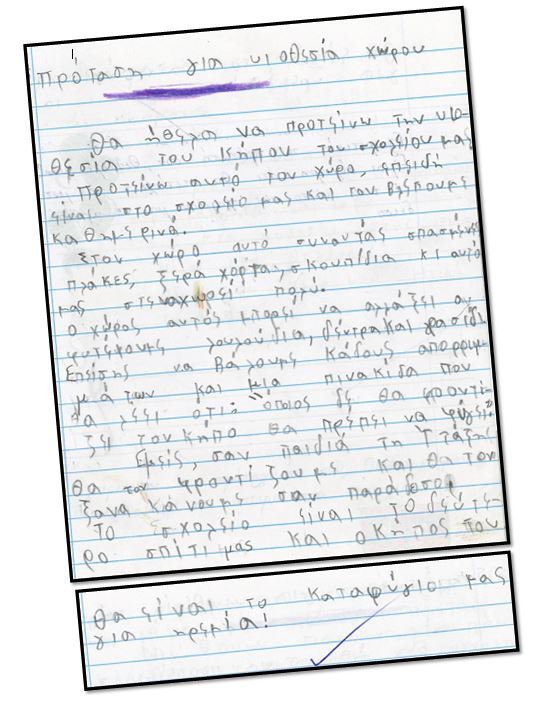 Πρόταση για υιοθεσία χώρου
Θα ήθελα να προτείνω την υιο-
θεσία του κήπου του σχολείου μας
Προτείνω αυτό τον χώρο, επειδή
είναι στο σχολείο μας και τον βλέπουμε
καθημερινά.
Στον χώρο αυτό συναντάς σπασμένες
πλάκες, ξερά χόρτα, σκουπίδια κι αυτό
μας στεναχωρεί πολύ.
Ο χώρος αυτός μπορεί να αλλάξει αν
φυτέψουμε λουλούδια, δέντρα και γρασίδι
Επίσης να βάλουμε κάδους απορριμ-
μάτων και μια πινακίδα που
θα λέει ότι: "όποιος δε θα φροντί-
ζει τον κήπο θα πρέπει να φύγει"
Εμείς, σαν παιδιά της Γ τάξης
θα τον φροντίζουμε και θα τον
ξανακάνουμε σαν παράδεισο.
Το σχολείο είναι το δεύτε-
ρο σπίτι μας και ο κήπος του
θα είναι το καταφύγιο μας
για ηρεμία!